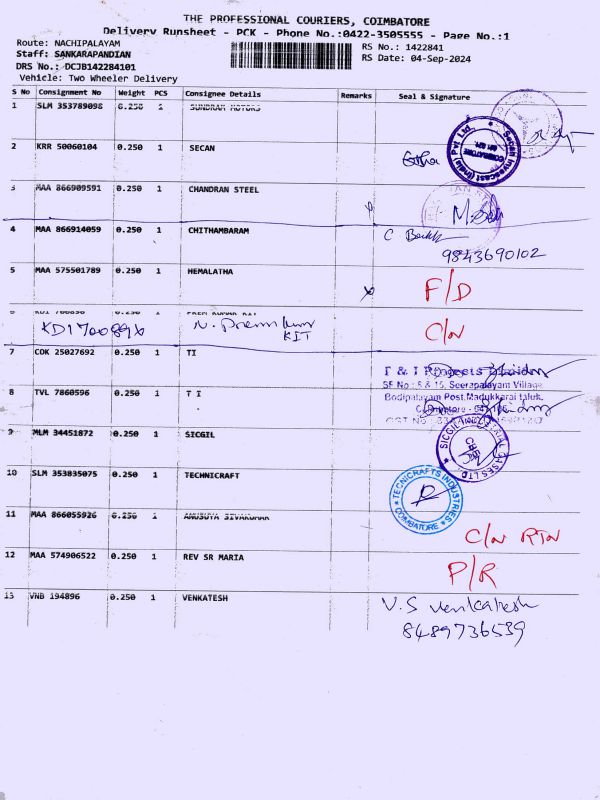 THE PROFESSIONAL COURIERS, COIMBATORE
Delivery Runsheet - PCK - Phone No.:0422-3505555 - Page No.:1
Route: NACHIPALAYAM
Staff: SANKARAPANDIAN
DRS No.: DCJB142284101
Vehicle: Two Wheeler Delivery
RS No.: 1422841
RS Date: 04-Sep-2024
S No Consignment No Weight PCS Consignee Details Remarks Seal & Signature
1 SLM 353789098 0.250 1 SUNDRAM MOTORS
2 KRR 50060104 0.250 1 SECAN
Secan Invescast (India) Pvt Ltd
COIMBATORE
3 MAA 866909591 0.250 1 CHANDRAN STEEL
4 MAA 866914059 0.250 1 CHITHAMBARAM
9843690102
5 MAA 575501789 0.250 1 HEMALATHA F/D
6 KDI 700896 0.250 1 PREM KUMAR KIT
KDI 700896 N. Prem kumar C/N
KIT
7 CDK 25027692 0.250 1 TI
SF No : 5 & 15, Seerapalayam Village
8 TVL 7860596 0.250 1 T I
Bodipalayam Post, Madukkarai taluk,
9 MLM 34451872 0.250 1 SICGIL
10 SLM 353835075 0.250 1 TECHNICRAFT
TECNICRAFTS INDUSTRIES
COIMBATORE
11 MAA 866055926 0.250 1 ANUSUYA SIVAKUMAR
C/N RTN
12 MAA 574906522 0.250 1 REV SR MARIA P/R
13 VNB 194896 0.250 1 VENKATESH V.S Venkatesh
8489736539